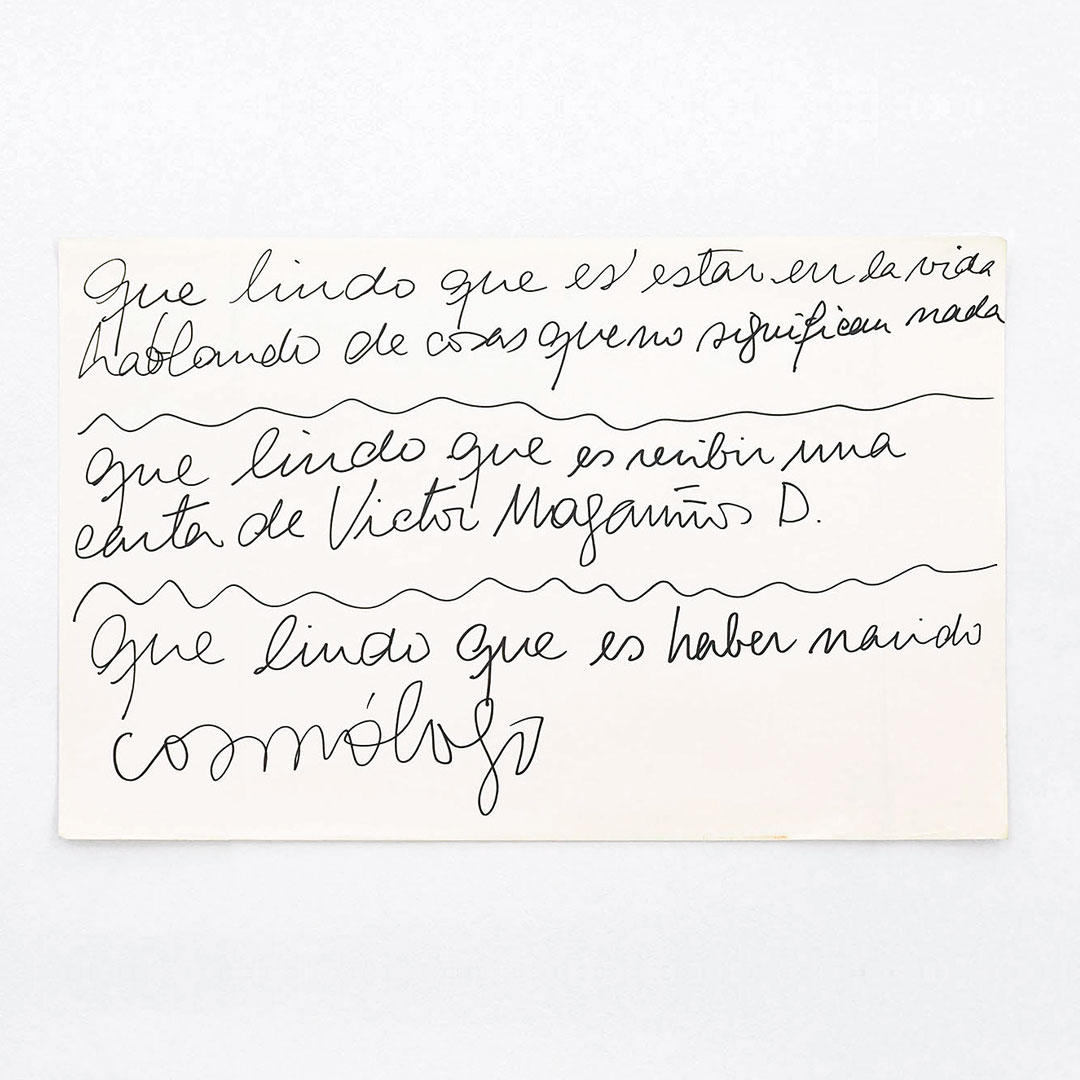 que lindo que es estar en la vida
hablando de cosas que no significan nada
que lindo que es recibir una
carta de Victor Magariños D.
que lindo que es haber nacido
cosmólogo